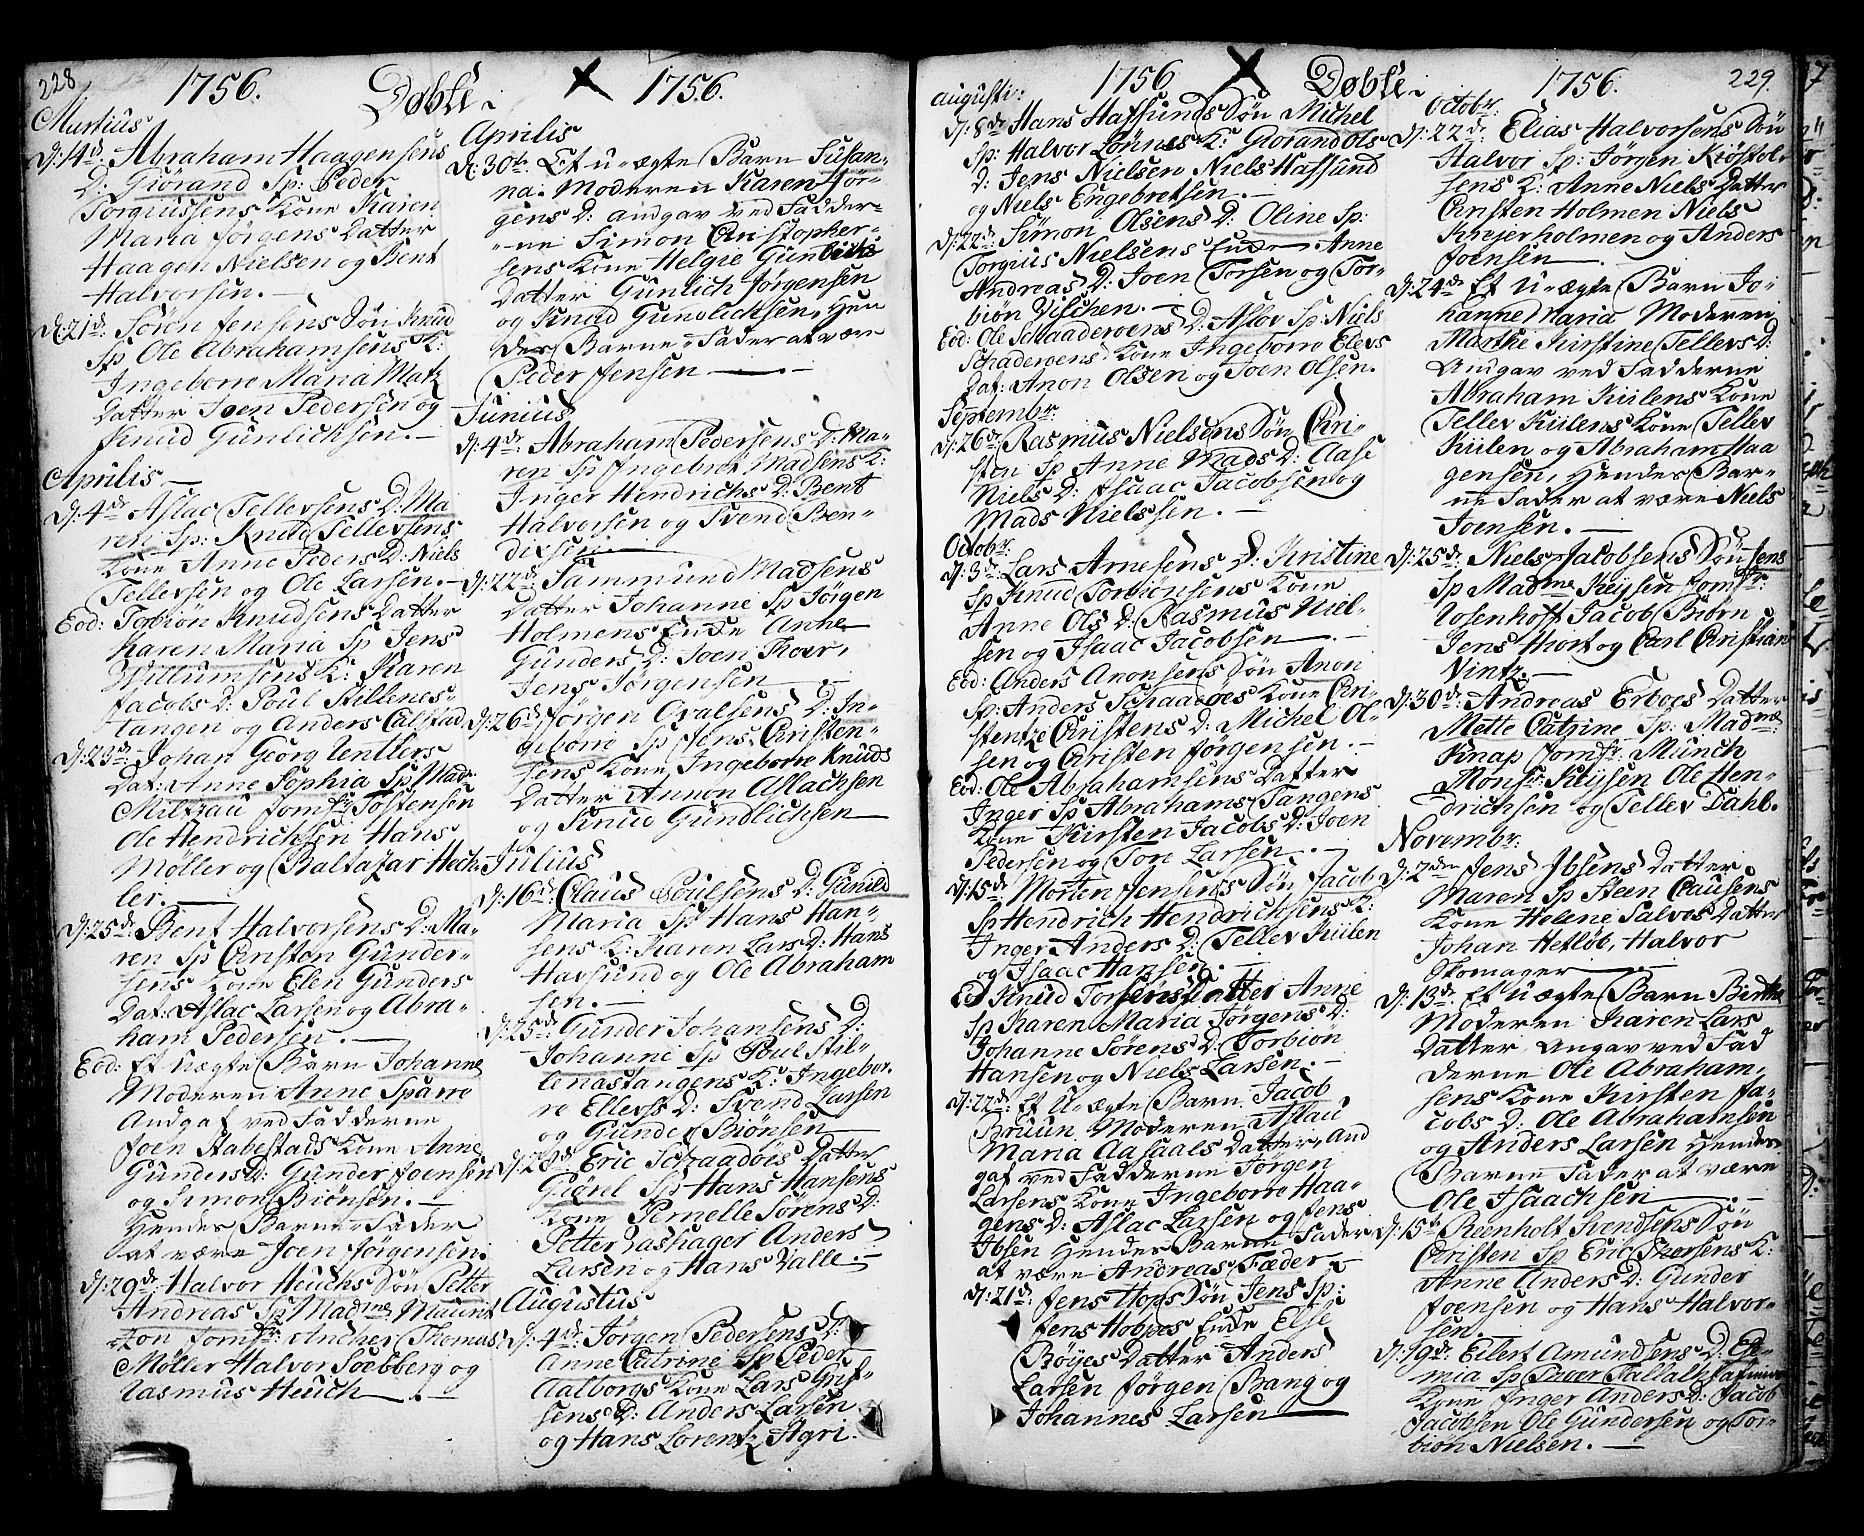 228
1756. Døbte. 1756.
Martius
d: 14de. Abraham Haagensens
D: Giørand Sp: Peder
Torgiussens Kone Karen
Maria Jørgens Datter
Haagen Nielsen og Bent
Halvorsen. —
d: 21de. Søren Jensens Søn Knud
Sp Ole Abrahamsens K:
Ingeborre Maria Matz
Datter Joen Pedersen og
Knud Gunlichsen. —
Aprilis —
d: 4de Aslac Tellevsens D: Ma
ren Sp: Knud Tellevsens
Kone Anne Peders D: Niels
Tellevsen og Ole Larsen. —
Eod: Tobiøn Knudsens Datter
Karen Maria Sp Jens
Willumsens K: Karen
Jacobs D: Poul Stillenes-
tangen og Anders Calstad
d: 23de Johan Georg Uentlers
Dat: Anne Sophia Sp Mad:
Miltzau Jomfr Tostensen
Ole Hendrichsen Hans
Møller og Baltazar Hech-
ler. —
d: 25de: Bent Halvorsens D: Ma-
ren Sp Christen Gunder-
sens Kone Elen Gunders
Dat: Aslac Larsen og Abra-
ham Pedersen. —
Eod: Et Uægte Barn Johanne
Moderen Anne Sparre
Andgaf ved Fadderne
Joen Habestads Kone Anne
Gunders D: Gunder Joensen
og Simon Biønsen. —
Hendes Barne-Fader
at være Joen Jørgensen.
d: 29de: Halvor Heuchs Søn Petter
Andreas Sp Madme Maurit
zon Jomfr: Ancher Thomas
Møller Halvor Soebberg og
Rasmus Heuch —
Aprilis
d: 30te. Et u-ægte Barn Susan-
na. Moderen Karen Jør-
gens D: andgav ved Fadder-
-ne Simon Christopher-
sens Kone Helgie Gunbiørs
Datter Gunlich Jørgensen
og Knud Gundlichsen, Hen
des Barne-Fader at være
Peder Jensen —
Junius
d: 4de Abraham Pedersens D: Ma-
ren Sp Ingebret Madsens K:
Inger Hendrichs D: Bent
Halvorsen og Svend Ben-
dixsen. —
d: 22de Tammund Madsens
Datter Johanne Sp Jørgen
Holmens Enke Anne
Gunders D: Joen Koer,
Jens Jørgensen —
d: 26de Jørgen Ovalsens D: In-
geborre Sp Jens Christen-
sens Kone Ingeborre Knuds
Datter Annon Aslachsen
og Knud Gundlichsen —
Julius
d: 16de Claus Poulsens D: Gunild
Maria Sp Hans Han-
sens K: Karen Lars D: Hans
Havsund og Ole Abraham
sen. —
d: 25de Gunder Johansens D:
Johanne Sp Poul Stil-
lenastangens K: Ingebor-
re Ellevs D: Svend Larsen
og Gunder Biønsen —
d: 28de Eric Schaadøes Datter
Giørel Sp Hans Hansens
Kone Pernelle Sørens D:
Petter Zashager Anders
Larsen og Hans Valle. —
Augustus
d: 4de: Jørgen Pedersens D:
Anne Catrine Sp Peder
Aalborgs Kone Lars Guf-
sens D: Anders Larsen
og Hans Lorentz Agri.
1756 Døbte. 1756. 229.
augusti:
d: 8de Hans Hafsunds Søn Michel
Sp: Halvor Lønnes K: Giorand Ols
D: Jens Nielsen Niels Hafsund
og Niels Engebretsen. —
d: 22de Simon Olsens D: Oline Sp:
Torgius Nielsens Enke Anne
Andreas D: Joen Torsen og Tor-
biøn Vischen. —
Eod: Ole Schaaderoens D: Aslov Sp: Niels
Schaderoens Kone Ingeborre Elevs
Dat: Anon Olsen og Joen Olsen.
Septembr.
d: 26de Rasmus Nielsens Søn Chri-
sten Sp Anne Mads D: Aase
Niels D: Isaac Jacobsen og
Mads Nielssen. —
Octobr.
d: 3de Lars Arnesens D: Kristine
Sp Knud Torbiønsens Kone
Anne Ols D: Rasmus Niel-
sen og Isaac Jacobsen —
Eod: Anders Aronsens Søn Anon
Sp: Anders Schaadøes Kone Chri-
stentze Christens D: Michel Ol-
sen og Christen Jørgensen. —
Eod: Ole Abrahamsens Datter
Inger Sp Abrahams Tangens
Kone Kirsten Jacobs D: Joen
Pedersen og Ton Larsen. —
d: 15de Morten Jensens Søn Jacob
Sp Hendrich Hendrichsens K:
Inger Anders D: Tellev Kiilen
og Isaac Hansen. —
Eod Knud Torsens Datter Anne
Sp Karen Maria Jørgens D:
Johanne Sørens D: Torbiøn
Hansen og Niels Larsen. —
d: 22de: Et U-ægte Barn Jacob
Bruun Moderen Aslau
Maria Aasaals Datter, And
gaf ved Fadderne Jørgen
Larsens Kone Ingeborre Haa-
gens D: Aslac Larsen og Jens
Ibsen Hendes Barne Fader
at være Andreas Fæder
d: 21de: Jens Hops Søn Jens Sp:
Jens Hobbes Enke Else
Bøyes Datter Anders
Larsen Jørgen Bang og
Johannes Larsen —
Octobr.
d: 22de Elias Halvorsens Søn
Halvor Sp: Jørgen Kiøstol-
sens K: Anne Niels Datter
Christen Holmen Niels
Krejerholmen og Anders
Joensen —
d: 24de Et U-ægte Barn Jo-
hanne Maria Moderen
Martke Kirstine Tellevs D:
Andgav ved Fadderne
Abraham Kiilens Kone
Tellev Kiilens Kone Tellev
Kiilen og Abraham Haa
gensen, Hendes Bar-
ne Fader at være Niels
Joensen. —
d: 25de Niels Jacobsens Søn Jens
Sp Madme Keysen Jomfr.
Rosenhoff Jacob Biørn
Jens Hort og Carl Christian
Vintz. —
d: 30de: Andreas Erboes Datter
Mette Catrine Sp: Madme
Knap Jomfr: Munch
Monsr: Kiysen Ole Hen-
drichsen og Tellev Dahl.
Novembr:
d: 2den Jens Ibsens Datter
Maren Sp Steen Clausens
Kone Helene Salvos Datter
Johan Hetløb, Halvor
Skomager —
d: 13de: Et Uægte Barn Birthe
Moderen Karen Lars
Datter Angav ved Fad
derne Ole Abraham-
sens Kone Kirsten Ja-
cobs D: Ole Abrahamsen
og Anders Larsen Hendes
Barne Fader at være
Ole Isaachsen —
d: 15de Reenholt Svendsens Søn
Christen Sp Eric Iversens K:
Anne Anders D: Gunder
Joensen og Hans Halvor-
sen. —
d: 19de: Eilert Amundsens D: Eu-
mia Sp Fallah
Kone Inger Anders D: Jacob
Jacobsen Ole Gundersen og Tor-
biøn Nielsen. —